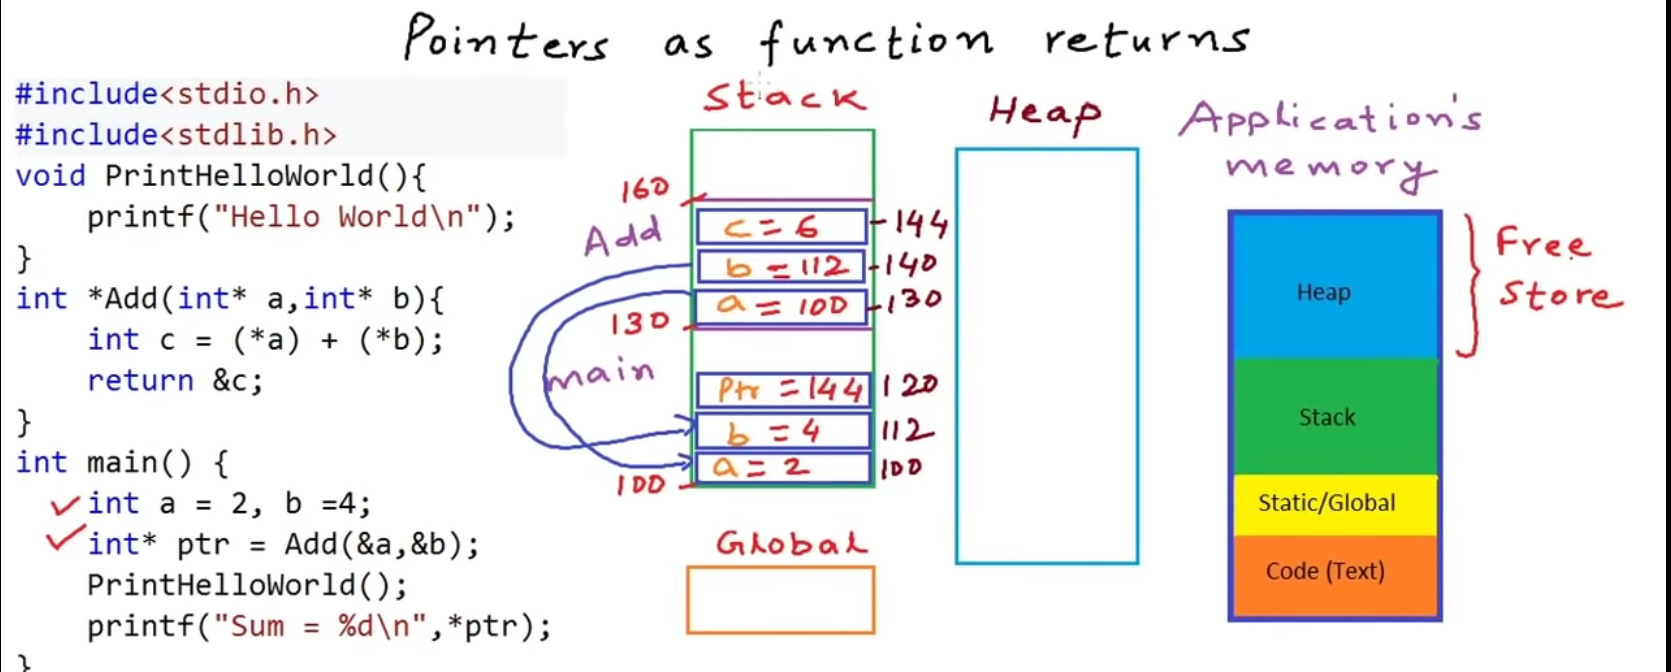 Pointers as function returns
#include<stdio.h>
#include<stdlib.h>
void PrintHelloWorld(){
    printf("Hello World\n");
}
int *Add(int* a,int* b){
    int c = (*a) + (*b);
    return &c;
}
int main() {
    int a = 2, b =4;
    int* ptr = Add(&a,&b);
    PrintHelloWorld();
    printf("Sum = %d\n",*ptr);
}
Stack
160
Add
c = 6 -144
b = 112 -140
a = 100 -130
130
main
Ptr = 144 120
b = 4 112
a = 2 100
100
Global
Heap
Application's
memory
Heap
Stack
Static/Global
Code (Text)
Free
Store